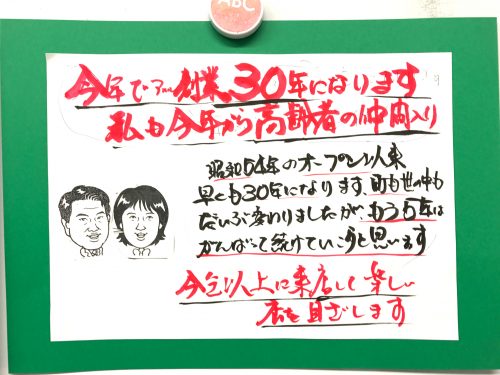 ABC
今年で創業30年になります
私も今年から高齢者の仲間入り
昭和54年のオープン以来
早くも30年になります、町も世の中も
だいぶ変わりましたが、もう5年は
がんばって続けていこうと思います
今迄以上に来店して楽しい
店を目ざします